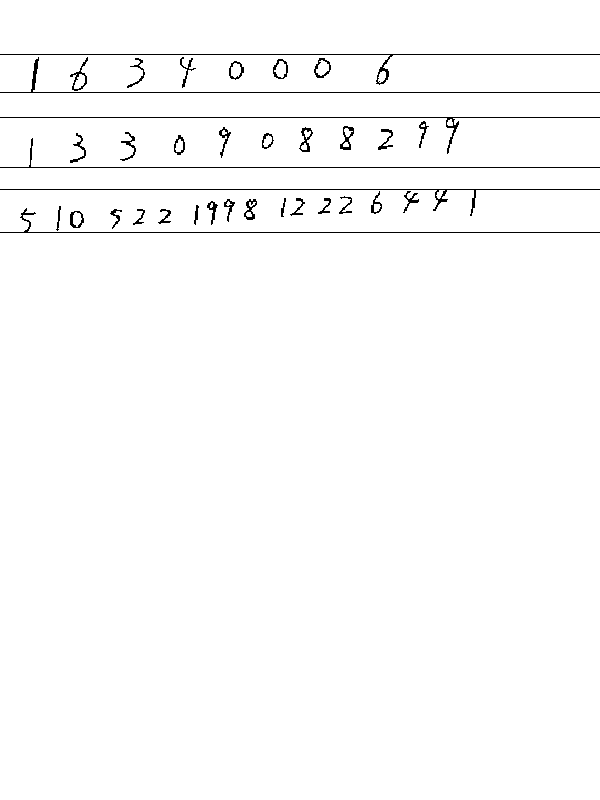 1 6 3 4 0 0 0 6
1 3 3 0 9 0 8 8 2 9 9
5 10 5 2 2 1998 12 2 2 6 4 4 1